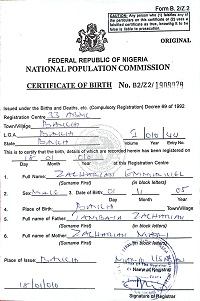 Form B. 2/Z.2
CAUTION: Any person who (1) falsifies any of
the particulars on this certificate or (2) uses a
falsified certificate as true, knowing it to be
false is liable to prosecution.
ORIGINAL
FEDERAL REPUBLIC OF NIGERIA
NATIONAL POPULATION COMMISSION
CERTIFICATE OF BIRTH No. B2/Z2/
Issued under the Births and Deaths, etc. (Compulsory Registration) Decree 69 of 1992
Registration Centre
Town/Village Bauchi
L.G.A. Bauchi
State Bauchi
Volume Year Entry No.
This is to certify that the birth, details of which are recorded herein has been registered on
at this Registration Centre
Day Month Year
1. Full Name: Zachariah Emmanuel
(Surname First) (in block letters)
2. Sex Male 3. Date of Birth 05
Day Month Year
4. Place of Birth Bauchi
5. Full Name of Father Zachariah
(Surname First) (in block letters)
6. Full Name of Mother Zachariah Mary
(Surname First) (in block letters)
Place of Issue: Bauchi
Name of Registrar
18/01/06
Date
Signature of Registrar